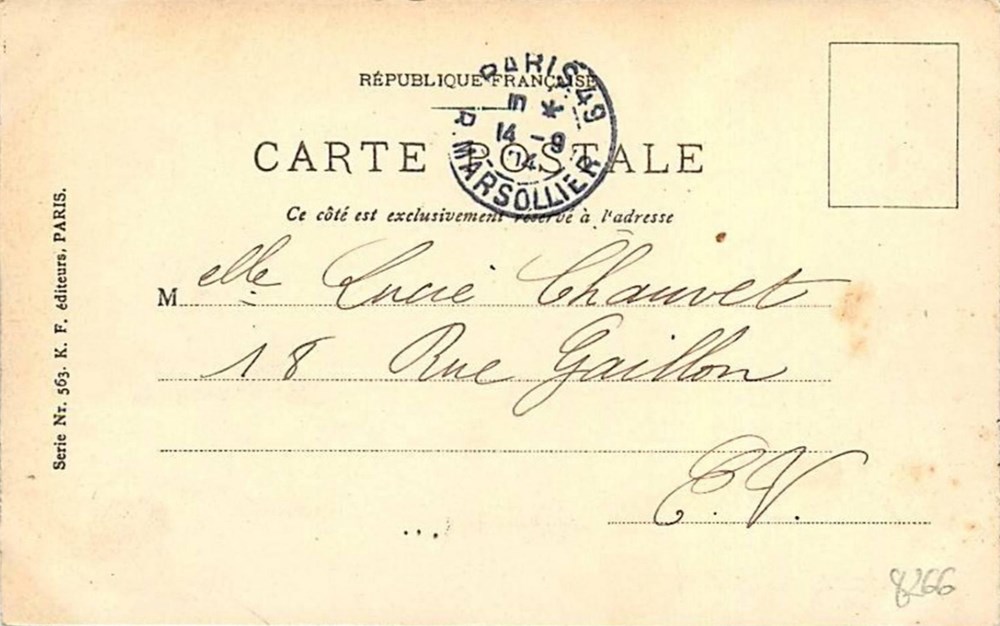 RÉPUBLIQUE FRANÇAISE
PARIS 49
5 *
14 - 9
14
R. MARSOLLIER
CARTE POSTALE
Ce côté est exclusivement réservé à l'adresse
Melle Lucie Chauvet
18 Rue Gaillon
E.V.
Serie Nr. 563. K. F. éditeurs, PARIS.
8266